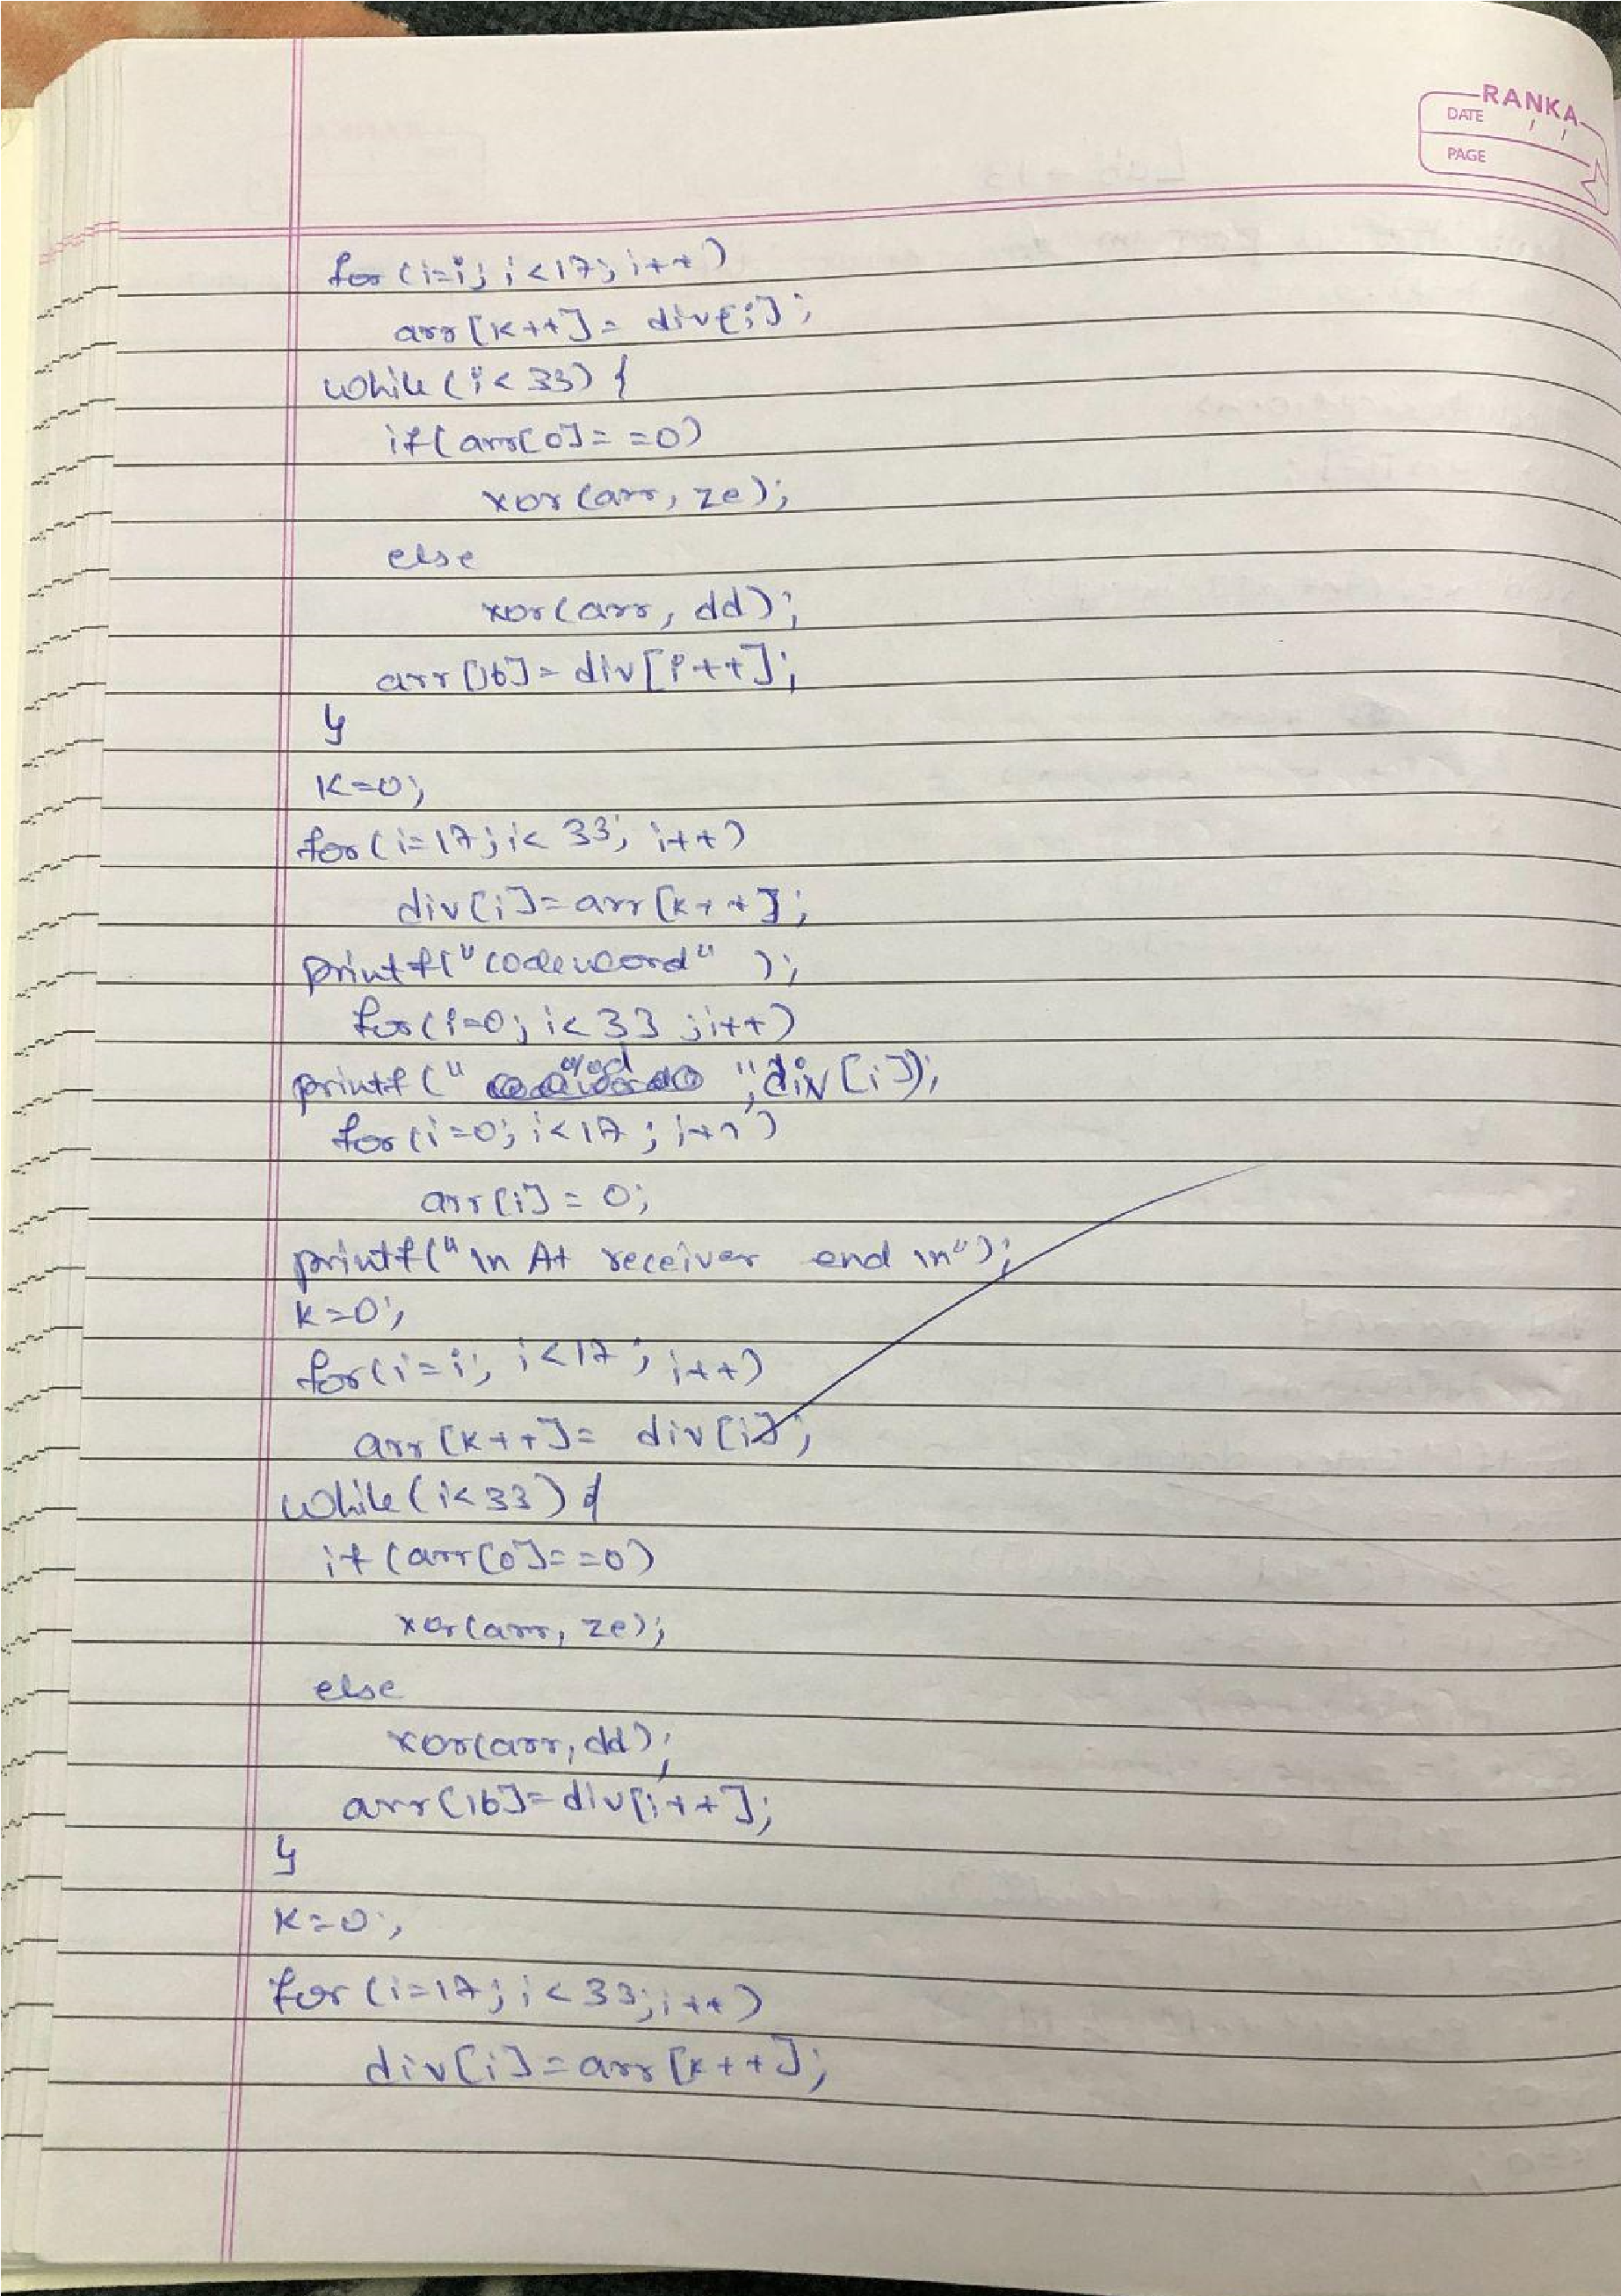 RANKA
DATE / /
PAGE
for (i=i; i<17; i++)
arr[k++]= div[i];
while (i<33) {
if(arr[0]==0)
xor (arr, ze);
else
xor(arr, dd);
arr[16]= div[i++];
}
K=0;
for (i=17; i<33; i++)
div[i]=arr[k++];
printf("codeword" );
for(i=0; i<33 ;i++)
printf(" %d ",div[i]);
for(i=0; i<17 ; i++)
arr[i] = 0;
printf("\n At receiver end \n");
k=0;
for(i=i; i<17; i++)
arr[k++]= div[i];
while(i<33) {
if (arr[0]==0)
xor(arr, ze);
else
xor(arr, dd);
arr[16]=div[i++];
}
K=0;
for (i=17; i<33; i++)
div[i]=arr[k++];